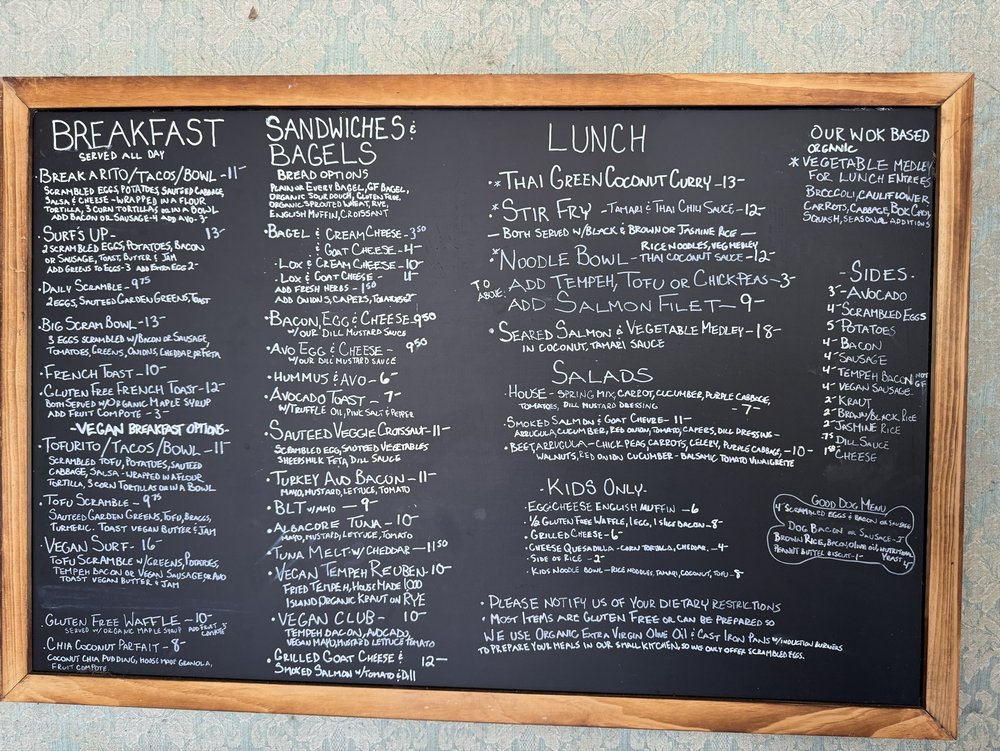 BREAKFAST
SERVED ALL DAY
• BREAKARITO/TACOS/BOWL - 11-
SCRAMBLED EGGS, POTATOES, SAUTEED CABBAGE,
SALSA & CHEESE - WRAPPED IN A FLOUR
TORTILLA, 3 CORN TORTILLAS OR IN A BOWL
ADD BACON OR SAUSAGE-4 ADD AVO-3-
• SURF'S UP - 13-
2 SCRAMBLED EGGS, POTATOES, BACON
OR SAUSAGE, TOAST, BUTTER & JAM
ADD GREENS TO EGGS-3 ADD EXTRA EGG 2-
• DAILY SCRAMBLE - 9.75
2 EGGS, SAUTEED GARDEN GREENS, TOAST
• BIG SCRAM BOWL - 13-
3 EGGS SCRAMBLED W/BACON OR SAUSAGE,
TOMATOES, GREENS, ONIONS, CHEDDAR OR FETA
• FRENCH TOAST - 10-
• GLUTEN FREE FRENCH TOAST - 12-
BOTH SERVED W/ORGANIC MAPLE SYRUP
ADD FRUIT COMPOTE - 3-
- VEGAN BREAKFAST OPTIONS -
• TOFURITO/TACOS/BOWL - 11-
SCRAMBLED TOFU, POTATOES, SAUTEED
CABBAGE, SALSA - WRAPPED IN A FLOUR
TORTILLA, 3 CORN TORTILLAS OR IN A BOWL
• TOFU SCRAMBLE - 9.75
SAUTEED GARDEN GREENS, TOFU, BRAGGS,
TURMERIC - TOAST VEGAN BUTTER & JAM
• VEGAN SURF - 16-
TOFU SCRAMBLE W/GREENS, POTATOES,
TEMPEH BACON OR VEGAN SAUSAGE OR AVO
TOAST VEGAN BUTTER & JAM
• GLUTEN FREE WAFFLE - 10-
SERVED W/ORGANIC MAPLE SYRUP ADD FRUIT 3 COMPOTE
• CHIA COCONUT PARFAIT - 8-
COCONUT CHIA PUDDING, HOUSE MADE GRANOLA,
FRUIT COMPOTE.
SANDWICHES &
BAGELS
BREAD OPTIONS
PLAIN OR EVERY BAGEL, GF BAGEL,
ORGANIC SOURDOUGH, GLUTEN FREE,
ORGANIC SPROUTED WHEAT, RYE,
ENGLISH MUFFIN, CROISSANT
• BAGEL & CREAM CHEESE - 3.50
& GOAT CHEESE - 4-
• LOX & CREAM CHEESE - 10-
• LOX & GOAT CHEESE - 11-
ADD FRESH HERBS - 1.50
ADD ONIONS, CAPERS, TOMATOES 2-
• BACON, EGG & CHEESE 9.50
W/OUR DILL MUSTARD SAUCE
• AVO EGG & CHEESE - 9.50
W/OUR DILL MUSTARD SAUCE
• HUMMUS & AVO - 6-
• AVOCADO TOAST - 7-
W/TRUFFLE OIL, PINK SALT & PEPPER
• SAUTEED VEGGIE CROISSANT - 11-
SCRAMBLED EGG, SAUTEED VEGETABLES
SHEEPS MILK FETA, DILL SAUCE
• TURKEY AVO BACON - 11-
MAYO, MUSTARD, LETTUCE, TOMATO
• BLT W/MAYO - 9-
• ALBACORE TUNA - 10-
MAYO, MUSTARD, LETTUCE, TOMATO
• TUNA MELT W/CHEDDAR - 11.50
• VEGAN TEMPEH REUBEN - 10-
FRIED TEMPEH, HOUSE MADE 1000
ISLAND, ORGANIC KRAUT ON RYE
• VEGAN CLUB - 10-
TEMPEH BACON, AVOCADO,
VEGAN MAYO, MUSTARD LETTUCE TOMATO
• GRILLED GOAT CHEESE & 12-
SMOKED SALMON W/TOMATO & DILL
LUNCH
• * THAI GREEN COCONUT CURRY - 13-
• * STIR FRY - TAMARI & THAI CHILI SAUCE - 12-
- BOTH SERVED W/BLACK & BROWN OR JASMINE RICE -
RICE NOODLES, VEG MEDLEY
• * NOODLE BOWL - THAI COCONUT SAUCE - 12-
TO ABOVE: ADD TEMPEH, TOFU OR CHICKPEAS - 3-
ADD SALMON FILET - 9-
• SEARED SALMON & VEGETABLE MEDLEY - 18-
IN COCONUT, TAMARI SAUCE
SALADS
HOUSE - SPRING MIX, CARROT, CUCUMBER, PURPLE CABBAGE,
TOMATOES, DILL MUSTARD DRESSING - 7-
• SMOKED SALMON & GOAT CHEVRE - 11-
ARRUGULA, CUCUMBER, RED ONION, TOMATO, CAPERS, DILL DRESSING -
• BEET ARRUGULA - CHICKPEAS, CARROTS, CELERY, PURPLE CABBAGE, - 10-
WALNUTS, RED ONION CUCUMBER - BALSAMIC TOMATO VINAIGRETTE
• KIDS ONLY •
• EGG & CHEESE ENGLISH MUFFIN - 6
• 1/2 GLUTEN FREE WAFFLE, 1 EGG, 1 SIDE BACON - 8-
• GRILLED CHEESE - 6-
• CHEESE QUESADILLA - CORN TORTILLA, CHEDDAR. - 4-
• SIDE OF RICE - 2-
• KIDS NOODLE BOWL - RICE NOODLES, TAMARI, COCONUT, TOFU - 8
• PLEASE NOTIFY US OF YOUR DIETARY RESTRICTIONS
• MOST ITEMS ARE GLUTEN FREE OR CAN BE PREPARED SO
WE USE ORGANIC EXTRA VIRGIN OLIVE OIL & CAST IRON PANS W/INDUCTION BURNERS
TO PREPARE YOUR MEALS IN OUR SMALL KITCHEN, SO WE ONLY OFFER SCRAMBLED EGGS.
OUR WOK BASED
ORGANIC
* VEGETABLE MEDLEY
FOR LUNCH ENTREES
BROCCOLI, CAULIFLOWER
CARROTS, CABBAGE, BOK CHOY,
SQUASH, SEASONAL ADDITIONS
• SIDES •
3- AVOCADO
4- SCRAMBLED EGGS
5- POTATOES
4- BACON
4- SAUSAGE
4- TEMPEH BACON NOT GF
4- VEGAN SAUSAGE
2- KRAUT
2- BROWN/BLACK RICE
2- JASMINE RICE
.75 DILL SAUCE
CHEESE
GOOD DOG MENU
4- SCRAMBLED EGGS & BACON OR SAUSAGE
DOG BACON OR SAUSAGE -
BROWN RICE, BACON, OLIVE OIL, NUTRITIONAL
PEANUT BUTTER BISCUIT - 1 YEAST 4-